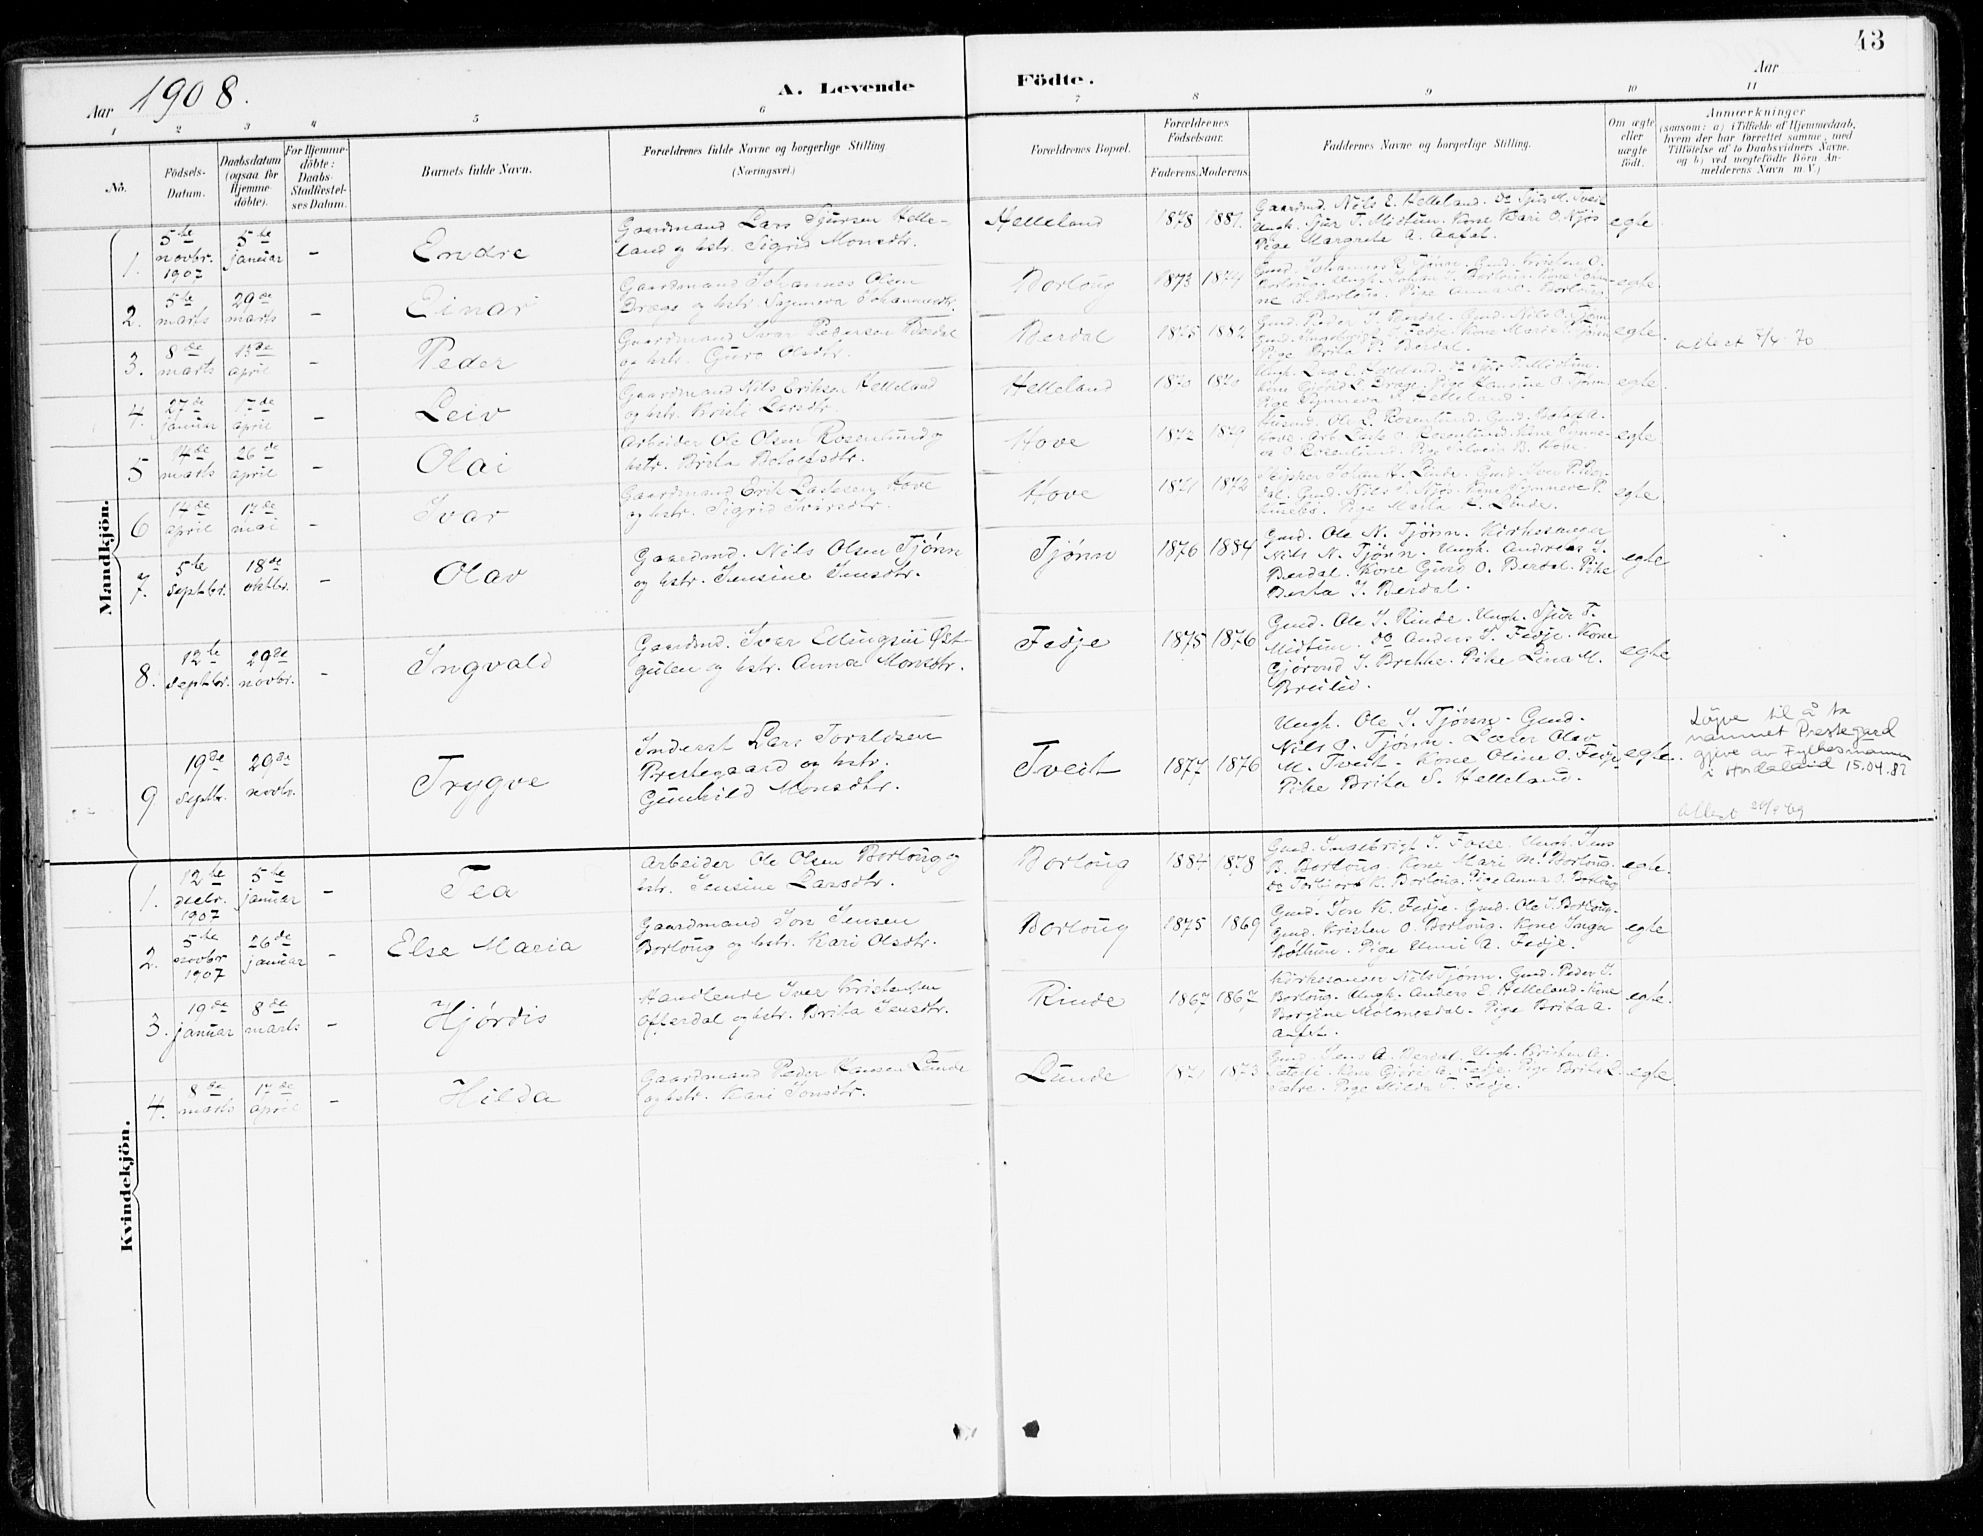 43
Aar 1908.
A. Levende Födte.
Aar
1 2 3 4 5 6 7 8 9 10 11
No.
Födsels-
Datum.
Daabsdatum
(ogsaa for
Hjemme-
döbte).
For Hjemme-
döbte:
Daabs-
Stadfæstel-
ses Datum.
Barnets fulde Navn.
Forældrenes fulde Navne og borgerlige Stilling
(Næringsvei.)
Forældrenes Bopæl.
Forældrenes
Födselsaar.
Faderens. Moderens.
Faddernes Navne og borgerlige Stilling.
Om ægte
eller
uægte
födt.
Anmærkninger
(saasom: a) i Tilfælde af Hjemmedaab,
hvem der har forrettet samme, med
Tilföielse af to Daabsvidners Navne.
og b) ved uægtefödte Börn An-
melderens Navn m. V.)
Mandkjön.
1.
5te
novbr.
1907
5te
januar
-
Endre
Gaardmand Lars Sjursen Helle-
land og hstr. Sigrid Monsdtr.
Helleland
1878 1881.
Gaardmd. Nils E. Helleland. Do Sjur M. Tveit
Ungk. Sjur T. Midtun. Kone Kari O. Njøs
Pige Margreta A. Aafat.
egte.
2.
5te
marts
29de
marts
-
Einar
Gaardmand Johannes Olsen
Drægs og hstr. Synneva Johannesdtr.
Borloug
1873 1874
egte
3.
8de
marts
13de
april
-
Peder
Gaardmand Ivar Pedersen Berdal
og hstr. Guro Olsdtr.
Berdal
1875 1882
Pige Brita P. Berdal.
egte.
attest 7/4-70
4.
27de
januar
17de
april
-
Leiv
Gaardmand Nils Eriksen Helleland
og hstr. Kristi Larsdtr.
Helleland
1870 1870
Pige Synneva S. Helleland.
egte
5
14de
marts
26de
april
-
Olai
Arbeider Ole Olsen Rosenlund og
hstr. Brita Botolfsdtr.
Hove
1872 1879
egte
6
14de
april
17de
mai
-
Ivar
Gaardmand Erik Lassesen Hove
og hstr. Sigrid Ivarsdtr.
Hove
1871 1872
egte
7.
5te
septbr.
18de
oktbr.
-
Olav
Gaardmd. Nils Olsen Tjønn
og hstr. Jensine Jensdtr.
Tjønn
1876 1884
Gmd. Ole N. Tjønn. Kirkesanger
Nils N. Tjønn. Ungk. Andreas I.
Berdal. Kone Guro O. Berdal. Pike
Berta I. Berdal.
egte
8.
12te
septbr.
29de
novbr.
-
Ingvald
Gaardmd. Iver Ellingsen Øst-
gulen og hstr. Anna Monsdtr.
Fedje
1875 1876
Gmd. Ole I. Rinde. Ungk. Sjur T.
Midtun. do Anders I. Fedje. Kone
Gjørond I. Brekke. Pike Lina M.
Breilid.
egte
9
19de
Septbr.
29de
novbr.
Trygve
Inderst Lars Toraldsen
Prestegaard og hstr.
Gunhild Monsdtr.
Tveit
1877 1876
Ungk. Ole I. Tjønn. Gmd.
Nils O. Tjønn. Lærer Olav
M. Tveit. Kone Oline O. Fedje
Pike Brita S. Helleland.
egte.
Løyve til å ta
namnet Prestegard
gjeve av Fylkesmannen
i Hordaland 15.04.82
Kvindekjön.
1.
12te
decbr.
1907
5te
januar
-
Tea
Arbeider Ole Olsen Borloug og
hstr. Jensine Larsdtr.
Borloug
1884 1878
Gmd. Ingebrigt I. Fosse. Ungk. Jens
B. Borloug. Kone Mari M. Borloug.
do Torbjørt K. Borloug. Pige Anna O. Borloug
egte.
2.
5te
novbr
1907
26de
januar
-
Else Maria
Gaardmand Jon Jensen
Borloug og hstr. Kari Olsdtr.
Borloug
1875 1869
Gmd. Jon K. Fedje. Gmd. Ole I. Borloug.
Gmd. Kristen O. Borloug. Kone Inga
Bøthun. Pige Unni A. Fedje.
egte
3.
19de
januar
8de
marts
-
Hjørdis
Handlende Iver Kristensen
Offerdal og hstr. Brita Jensdtr.
Rinde
1867 1867
Kirkesanger Nils Tjønn. Gmd. Peder I.
Borloug. Ungk. Anders E. Helleland. Kone
Borgine Molmesdal. Pige Brita A.
Aafet.
egte.
4.
8de
marts
17de
april
-
Hilda
Gaardmand Peder Hansen Lunde
og hstr. Kari Jonsdtr.
Lunde
1871 1873
egte.